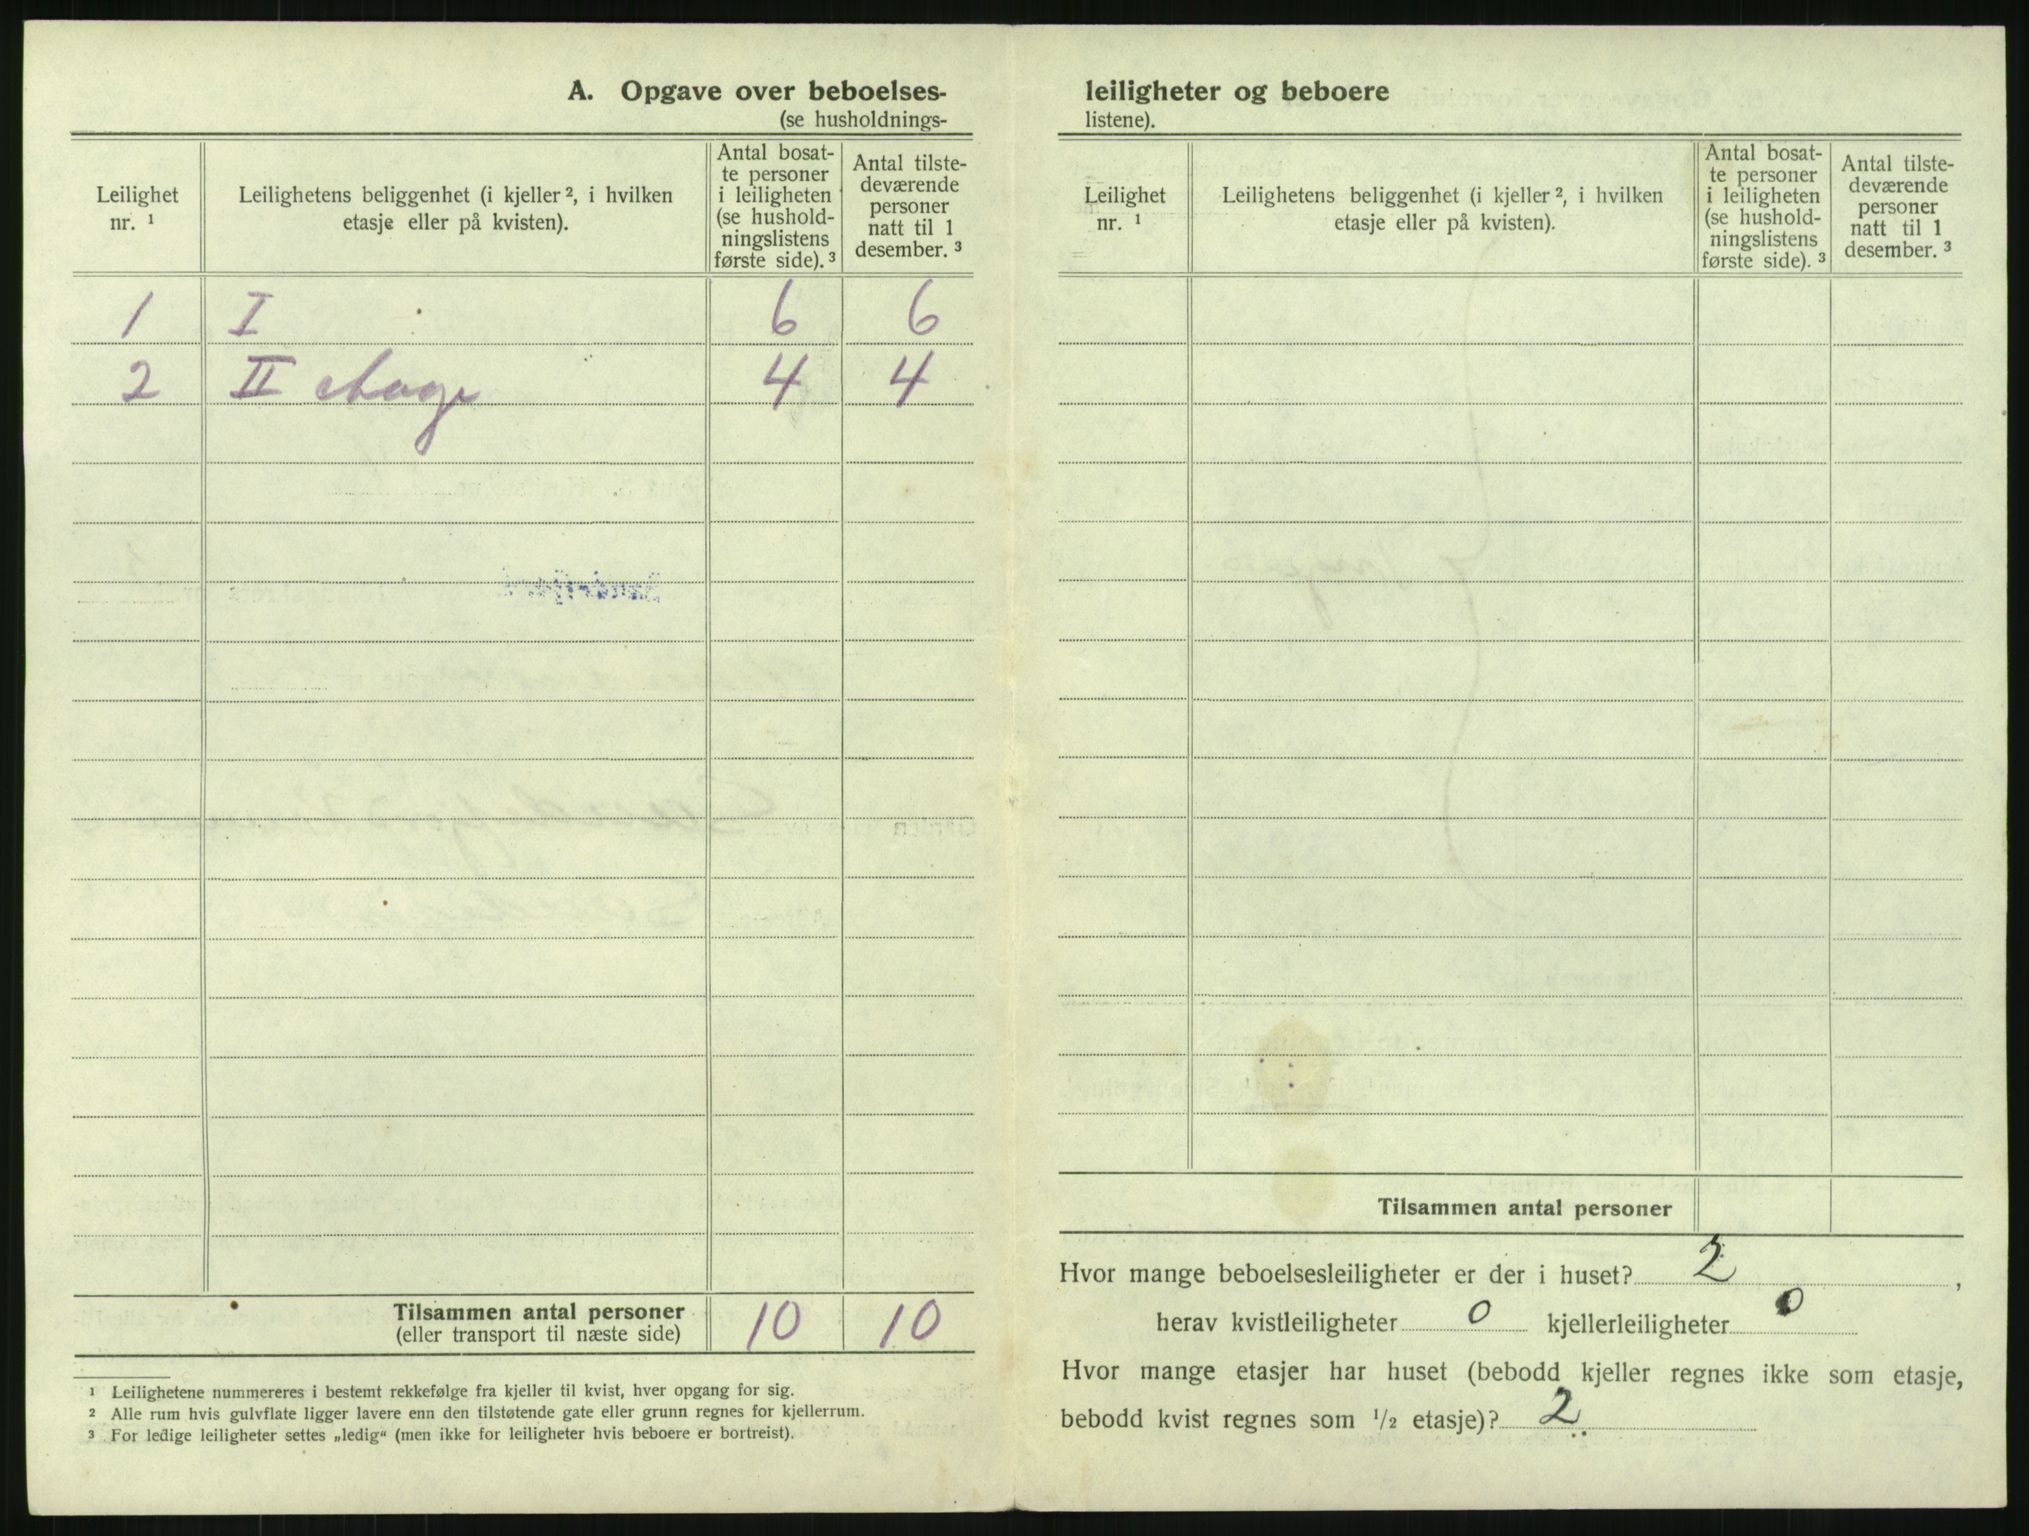 A. Opgave over beboelses-
(se husholdnings-
Leilighet nr. ¹
Leilighetens beliggenhet (i kjeller ², i hvilken etasje eller på kvisten).
Antal bosat-
te personer
i leiligheten
(se hushold-
ningslistens
første side). ³
Antal tilste-
deværende
personer
natt til 1
desember. ³
1 I 6 6
2 II etage 4 4
Tilsammen antal personer 10 10
(eller transport til næste side)
¹ Leilighetene nummereres i bestemt rekkefølge fra kjeller til kvist, hver opgang for sig.
² Alle rum hvis gulvflate ligger lavere enn den tilstøtende gate eller grunn regnes for kjellerrum.
³ For ledige leiligheter settes „ledig“ (men ikke for leiligheter hvis beboere er bortreist).
leiligheter og beboere
listene).
Leilighet nr. ¹
Leilighetens beliggenhet (i kjeller ², i hvilken etasje eller på kvisten).
Antal bosat-
te personer
i leiligheten
(se hushold-
ningslistens
første side). ³
Antal tilste-
deværende
personer
natt til 1
desember. ³
Tilsammen antal personer
Hvor mange beboelsesleiligheter er der i huset? 2,
herav kvistleiligheter 0 kjellerleiligheter 0
Hvor mange etasjer har huset (bebodd kjeller regnes ikke som etasje,
bebodd kvist regnes som ½ etasje)? 2